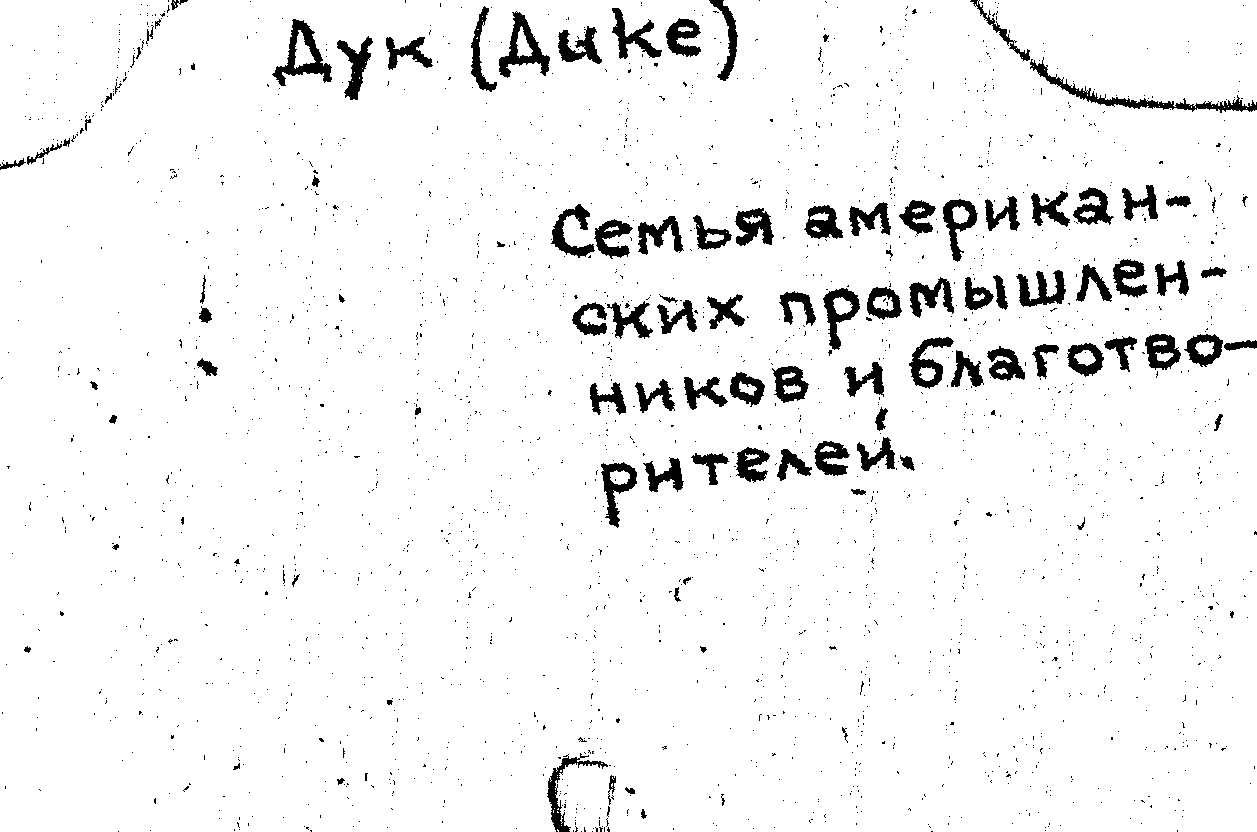 Дук (Дике)
Семья американ-
ских промышлен-
ников и благотво-
рителей.